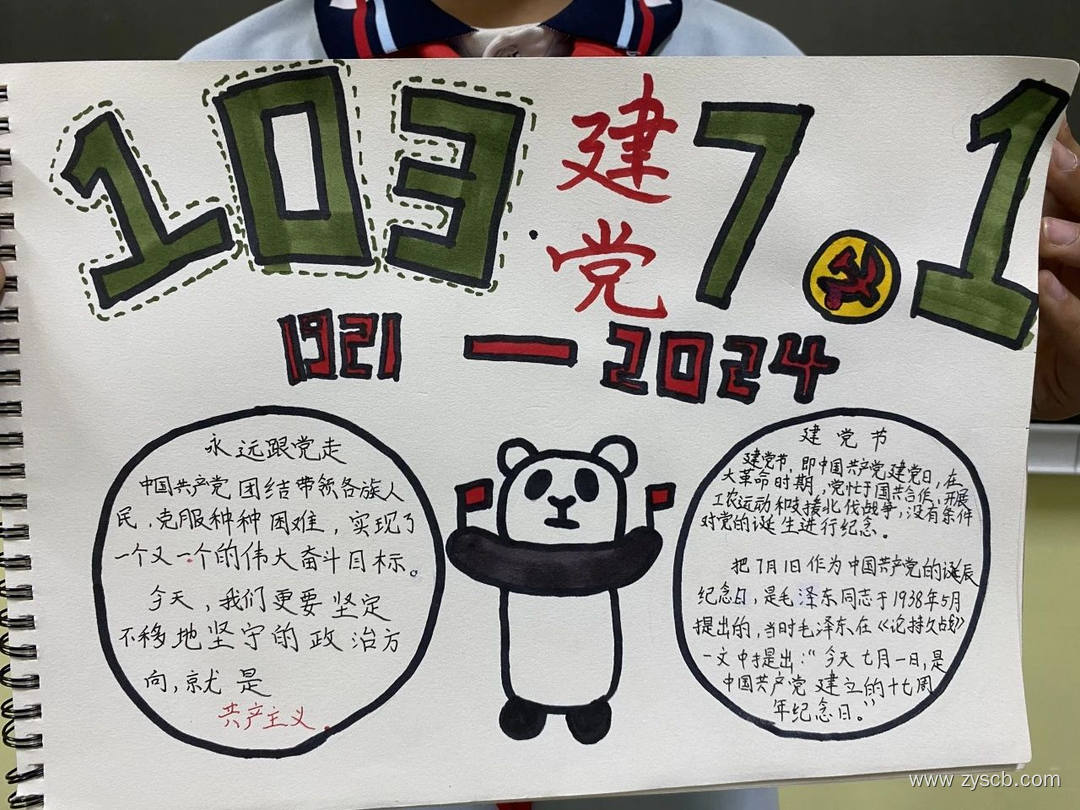 103
建党
7.1
1921 — 2024
永远跟党走
中国共产党团结带领各族人
民，克服种种困难，实现了
一个又一个的伟大奋斗目标。
今天，我们更要坚定
不移地坚守的政治方
向，就是
共产主义。
建党节
建党节，即中国共产党建党日，在
大革命时期，党忙于国共合作、开展
工农运动和支援北伐战争，没有条件
对党的诞生进行纪念。
把7月1日作为中国共产党的诞辰
纪念日，是毛泽东同志于1938年5月
提出的，当时毛泽东在《论持久战》
一文中提出："今天七月一日，是
中国共产党建立的十七周
年纪念日。"
www.zyscb.com